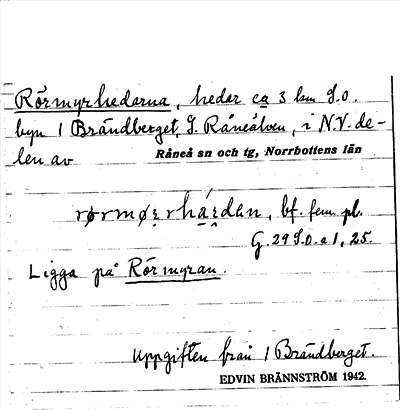 Rörmyrhedarna, hedar ca 3 km S.O.
byn 1 Brändberget, S. Råneälven, i N.V. de-
len av Råneå sn och tg, Norrbottens län
rørmø̣ṛrhá̱i̯dan, bf. fem. pl.
G. 29 S.O. a 1, 25.
Ligga på Rörmyran.
Uppgiften från 1 Brändberget.
EDVIN BRÄNNSTRÖM 1942.